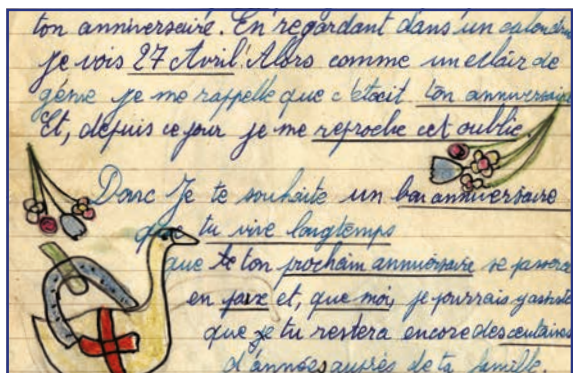 ton anniversaire. En regardant dans un calendri
je vois 27 Avril! Alors comme un eclair de
génie je me rappelle que c'était ton anniversaire
Et, depuis ce jour je me reproche cet oublie
Donc Je te souhaite un bon anniversaire
que tu vive longtemps
que te ton prochain anniversaire se passera
en paix et, que moi, je pourrais y assisté
que je tu restera encore des centaines
d'années auprès de ta famille.